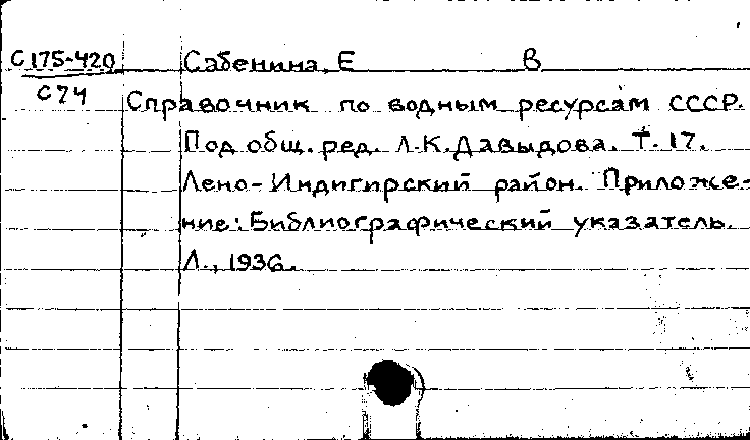 С175-420 Сабенина, Е В
С74 Справочник по водным ресурсам СССР.
Под общ. ред. Л.К. Давыдова. Т. 17.
Лено-Индигирский район. Приложе-
ние: Библиографический указатель.
Л., 1936.